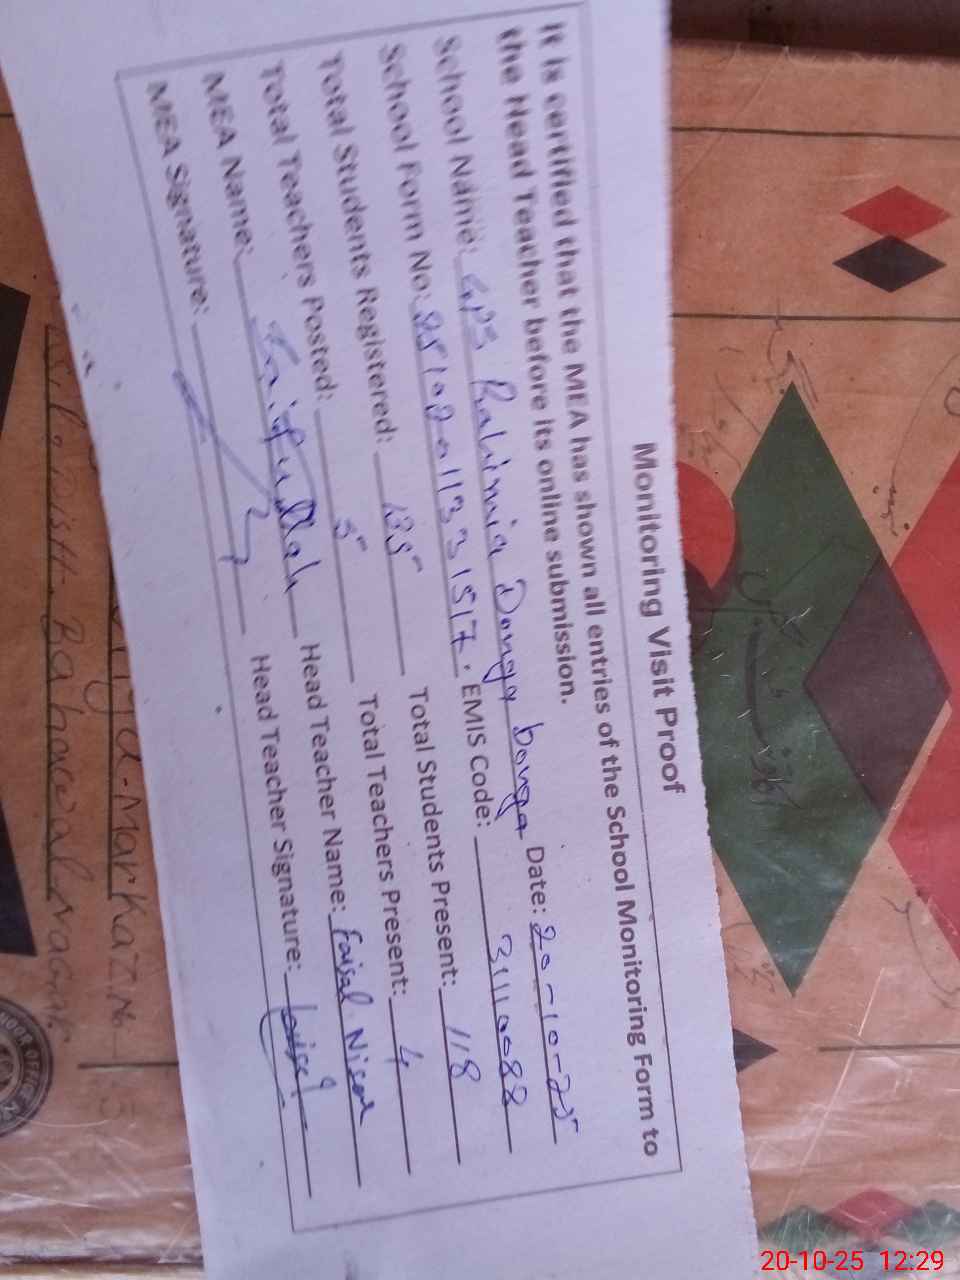 Monitoring Visit Proof
It is certified that the MEA has shown all entries of the School Monitoring Form to
the Head Teacher before its online submission.
School Name: GPS Rahimia Donga bonga Date: 20-10-25
School Form No: 25102011331517. EMIS Code: 31110088
Total Students Registered: 135 Total Students Present: 118
Total Teachers Posted: 5 Total Teachers Present: 4
MEA Name: Head Teacher Name: Faisal Nisar
MEA Signature: Head Teacher Signature: Faisal
Markaz
Distt. Bahawalnagar
20-10-25 12:29